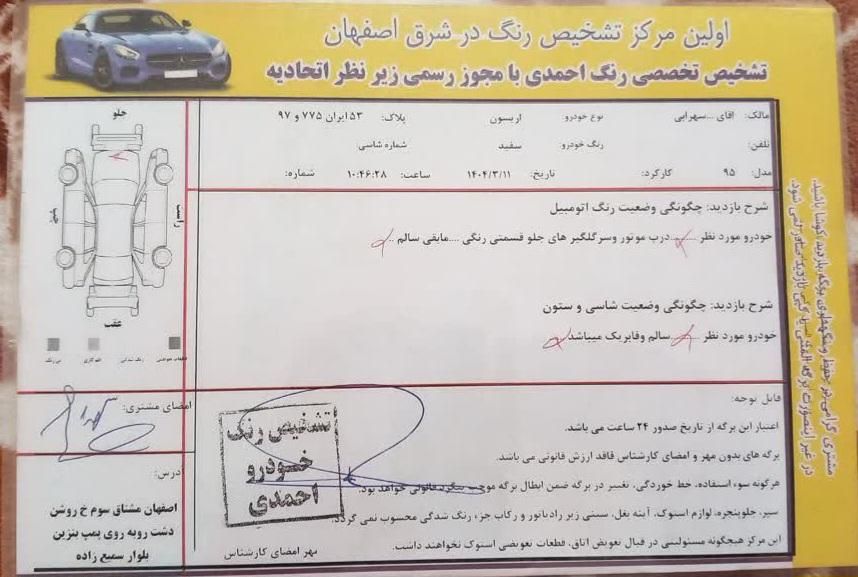 اولین مرکز تشخیص رنگ در شرق اصفهان
تشخیص تخصصی رنگ احمدی با مجوز رسمی زیر نظر اتحادیه
مالک: اقای ...سهرابی نوع خودرو اریسون پلاک: ۵۳ ایران ۷۷۵ و ۹۷
تلفن: رنگ خودرو: سفید شماره شاسی:
مدل: ۹۵ کارکرد: تاریخ: ۱۴۰۴/۳/۱۱ ساعت: ۱۰:۴۶:۲۸ شماره:
شرح بازدید: چگونگی وضعیت رنگ اتومبیل
خودرو مورد نظر ......درب موتور وسرگلگیر های جلو قسمتی رنگی ....مابقی سالم ..
شرح بازدید: چگونگی وضعیت شاسی و ستون
خودرو مورد نظر سالم وفابریک میباشد
قابل توجه:
اعتبار این برگه از تاریخ صدور ۲۴ ساعت می باشد.
برگه های بدون مهر و امضای کارشناس فاقد ارزش قانونی می باشد.
هرگونه سوء استفاده، خط خوردگی، تغییر در برگه ضمن ابطال برگه موجب پیگرد قانونی خواهد بود.
سپر، جلوپنجره، لوازم استوک، آینه بغل، سینی زیر رادیاتور و رکاب جزء رنگ شدگی محسوب نمی گردد.
این مرکز هیچگونه مسئولیتی در قبال تعویض اتاق، قطعات تعویضی استوک نخواهند داشت.
مهر امضای کارشناس
تشخیص رنگ
خودرو
احمدی
جلو
راست
چپ
عقب
رنگ شدگی
بی رنگ
امضای مشتری:
آدرس:
اصفهان مشتاق سوم خ روشن
دشت روبه روی پمپ بنزین
بلوار سمیع زاده
مشتری گرامی در حفظ و نگهداری برگه بازدید کوشا باشید.
در غیر اینصورت برگه المثنی یا کپی بازدید صادر نمی شود.